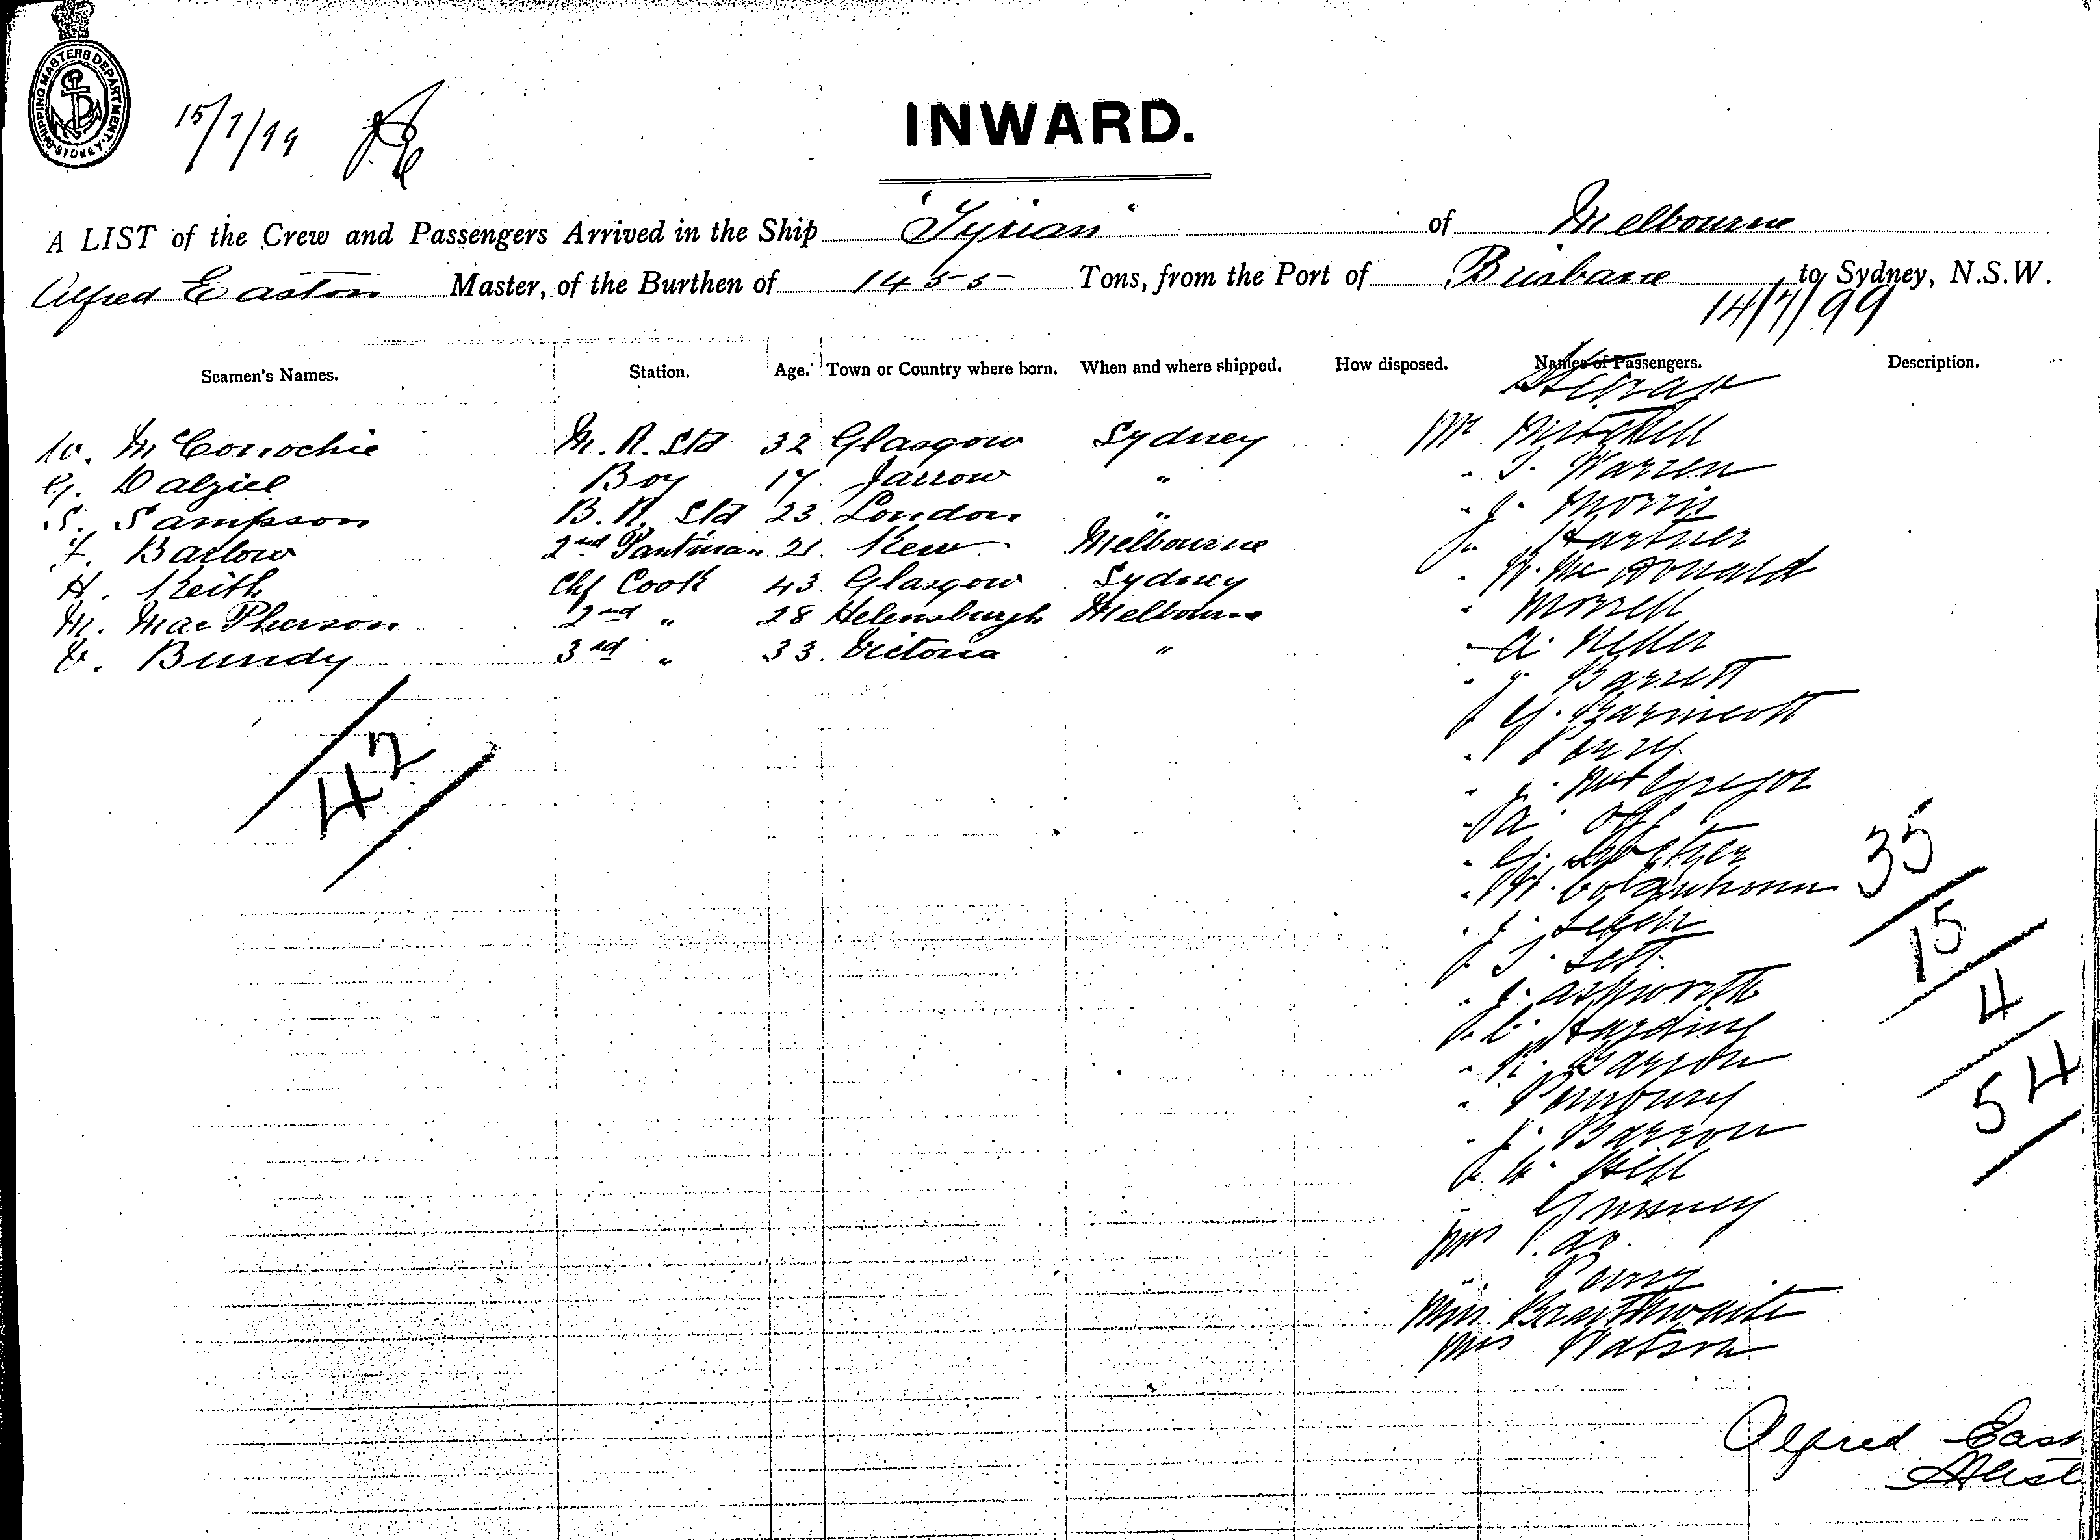 SHIPPING MASTERS DEPARTMENT SYDNEY
15/7/99
INWARD.
A LIST of the Crew and Passengers Arrived in the Ship "Tyrian" of Melbourne
Alfred Easton Master, of the Burthen of 1455 Tons, from the Port of Brisbane to Sydney, N.S.W.
14/7/99
Seamen's Names. Station. Age. Town or Country where born. When and where shipped. How disposed. Names of Passengers. Description.
Steerage
W. McConochie M. R. Std 32 Glasgow Sydney Mr Mitchell
G. Dalziel Boy 17 Jarrow " " T. Warren
S. Sampson B. R. Std 23 London " " J. Morris
F. Barlow 2nd Pantman 21 Kew Melbourne Hartner
H. Keith Chf Cook 43 Glasgow Sydney " McDonald
M. MacPherson 2nd " 28 Helensburgh Melbourne " Morrell
Bundy 3rd " 33 Victoria " A. Neller
" J Barrett
G.
" Perry
" J. McGregor
" A. Off
" G.
" H. Colquhoun
" J.
T. Lett
" J. Ashworth
C. Harding
" R. Barron
" Pembury
" J. Barron
Hill
42
35
15
4
54
Mrs do.
" Perry
Miss Braithwaite
Mrs Watson
Alfred East